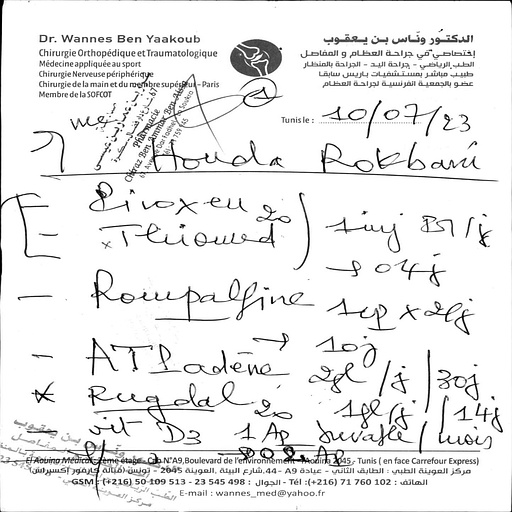 Dr. Wannes Ben Yaakoub
Chirurgie Orthopédique et Traumatologique
Médecine appliquée au sport
Chirurgie Nerveuse périphérique
Chirurgie de la main et du membre supérieur – Paris
Membre de la SOFCOT
الدكتور ونّاس بن يعقوب
إختصاصي في جراحة العظام و المفاصل
الطب الرياضي - جراحة اليد - الجراحة بالمنظار
طبيب مباشر بمستشفيات باريس سابقا
عضو بالجمعية الفرنسية لجراحة العظام
Pharmacie
Chiraz Ben Ammar Ben Ali
1
Tunis le : 10/07/23
Me
Houda Rokbani
- Piroxen 20
- x Thiomed
1inj BT/j
→ 04j
- Rompalgine 1cp x 2/j
→ 10j
- ATPadène 2gl /j / 30j
* Rugdal 20 1gl/j / 14j
- vit D3 1 Ap buvable / mois
El Aouina Médical 2ème étage - Cab N°A9, Boulevard de l'environnement - Aouina 2045 - Tunis ( en face Carrefour Express)
مركز العوينة الطبي : الطابق الثاني - عيادة A9 - 44,شارع البيئة ,العوينة 2045 - تونس (قبالة كارفور إكسبراس)
GSM : (+216) 50 109 513 - 23 545 498 : الجوال - Tél :(+216) 71 760 102 : الهاتف
E-mail : wannes_med@yahoo.fr